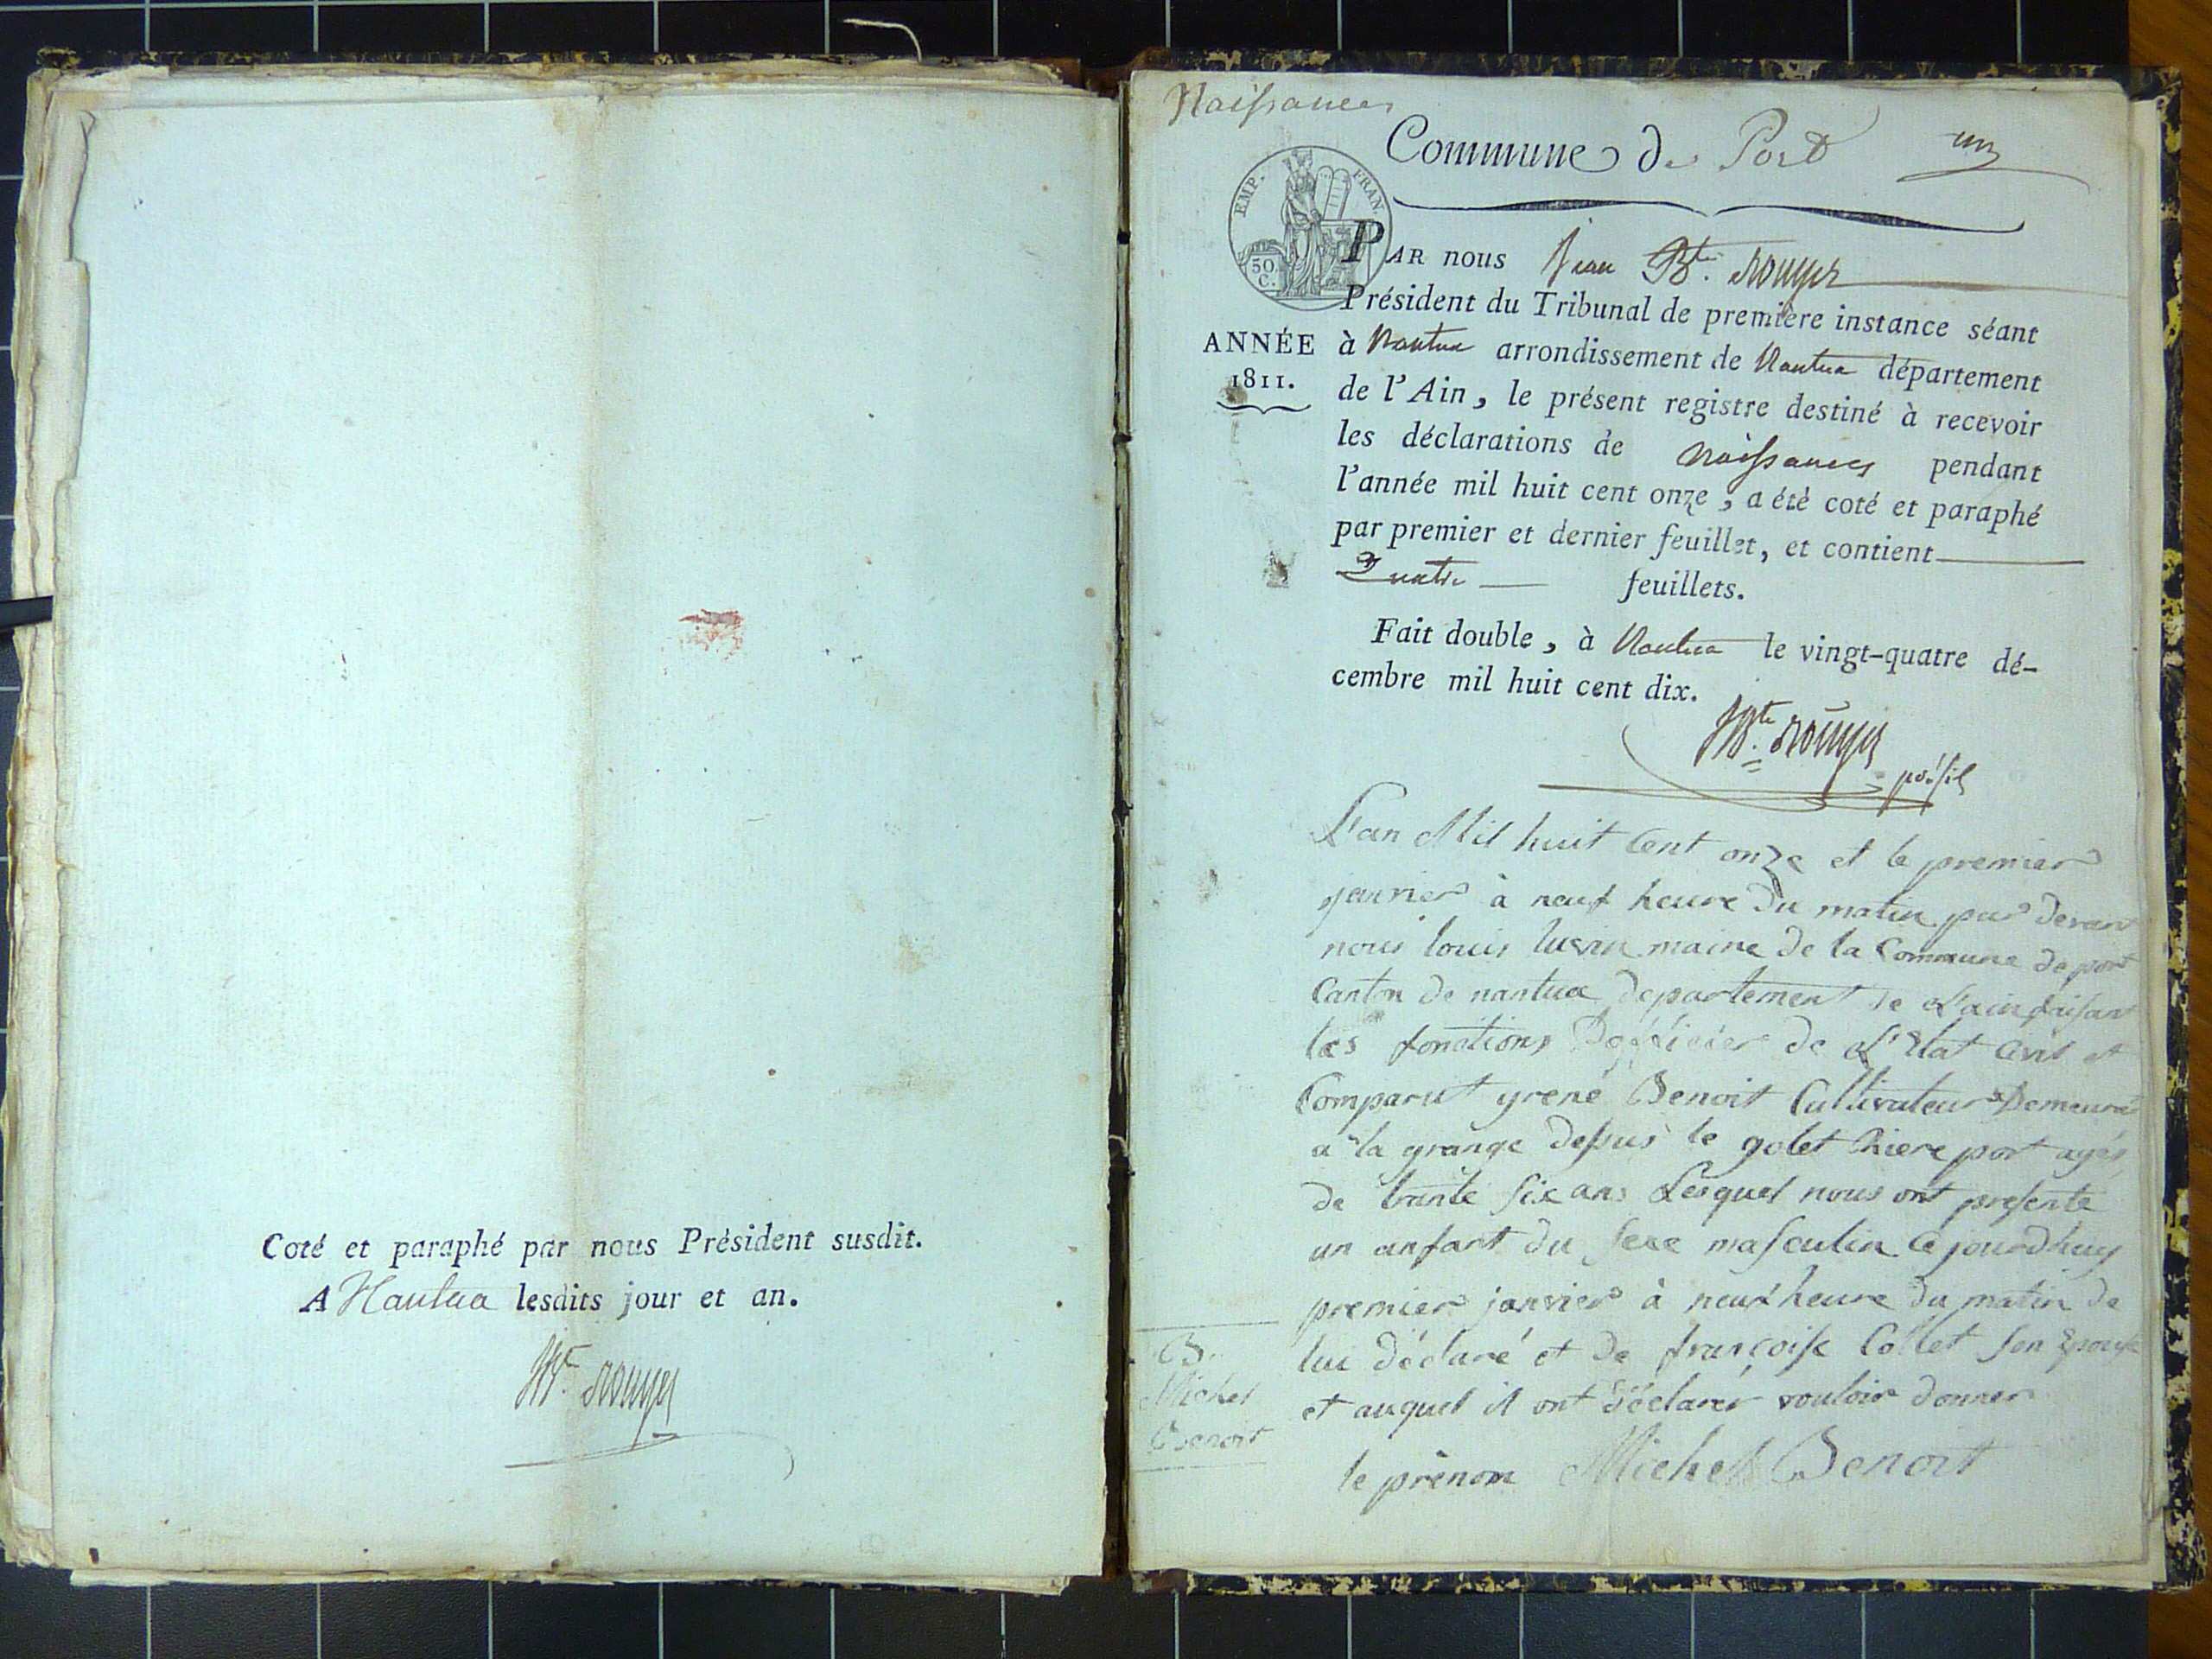 Coté et paraphé par nous Président susdit.
A Nantua lesdits jour et an.
JBte rouyer
Naissances
Commune de Port
un
EMP. FRAN.
50 C.
PAR nous Jean Bte. rouyer
Président du Tribunal de première instance séant
ANNÉE
1811.
à Nantua arrondissement de Nantua département
de l'Ain, le présent registre destiné à recevoir
les déclarations de naissances pendant
l'année mil huit cent onze, a été coté et paraphé
par premier et dernier feuillet, et contient
Quatre feuillets.
Fait double, à Nantua le vingt-quatre dé-
cembre mil huit cent dix.
JBte. rouyer
L'an Mil huit Cent onze et le premier
janvier à neuf heure Du matin par Devant
nous louis maire de la Commune de port
Canton de nantua Departement de L'ain faisant
les fonctions Dofficier de L'Etat Civil et
Comparut grené Benoit Cultivateur Demeurā
a la grange Dessus le golet port agés
de trante six ans Lesquel nous ont presente
un anfant du sexe masculin Cejourdhuy
premier janvier à neuf heure Du matin De
lui déclaré et De françoise Collet son Epouse
et auquel il ont déclarér vouloir donner
le prénom Michel Benoit
B.
Michel
Benoit